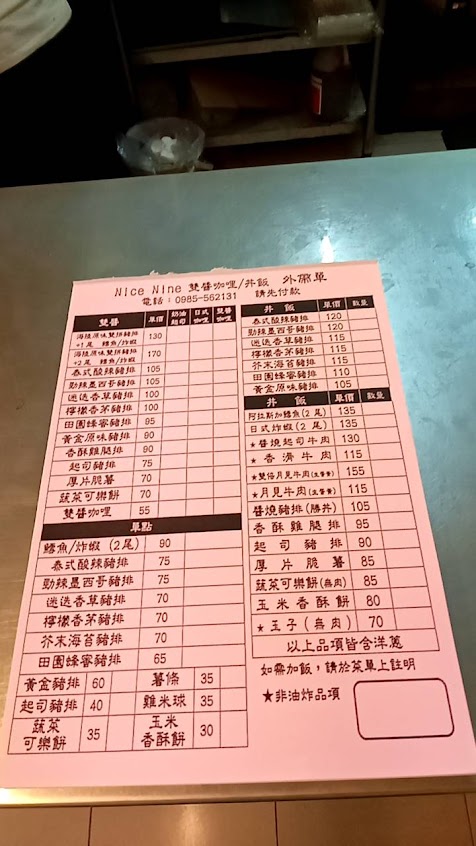 Nice Nine 雙醬咖哩/丼飯 外帶單
電話：0985-562131 請先付款
雙醬 單價 奶油起司 日式咖哩 雙醬咖哩
海陸原味雙拼豬排
+1尾 鱈魚/炸蝦 130
海陸原味雙拼豬排
+2尾 鱈魚/炸蝦 170
泰式酸辣豬排 105
勁辣墨西哥豬排 105
迷迭香草豬排 100
檸檬香茅豬排 100
田園蜂蜜豬排 95
黃金原味豬排 90
香酥雞腿排 90
起司豬排 75
厚片脆薯 70
蔬菜可樂餅 70
雙醬咖哩 55
單點
鱈魚/炸蝦 (2尾) 90
泰式酸辣豬排 75
勁辣墨西哥豬排 75
迷迭香草豬排 70
檸檬香茅豬排 70
芥末海苔豬排 70
田園蜂蜜豬排 65
黃金豬排 60 薯條 35
起司豬排 40 雞米球 35
蔬菜可樂餅 35 玉米香酥餅 30
丼飯 單價 數量
泰式酸辣豬排 120
勁辣墨西哥豬排 120
迷迭香草豬排 115
檸檬香茅豬排 115
芥末海苔豬排 115
田園蜂蜜豬排 110
黃金原味豬排 105
丼飯 單價 數量
阿拉斯加鱈魚(2尾) 135
日式炸蝦(2尾) 135
★醬燒起司牛肉 130
★香滑牛肉 115
★雙倍月見牛肉(生蛋黃) 155
★月見牛肉(生蛋黃) 115
醬燒豬排(勝丼) 105
香酥雞腿排 95
起司豬排 90
厚片脆薯 85
蔬菜可樂餅(無肉) 85
玉米香酥餅 80
★玉子(無肉) 70
以上品項皆含洋蔥
如需加飯，請於菜單上註明
★非油炸品項